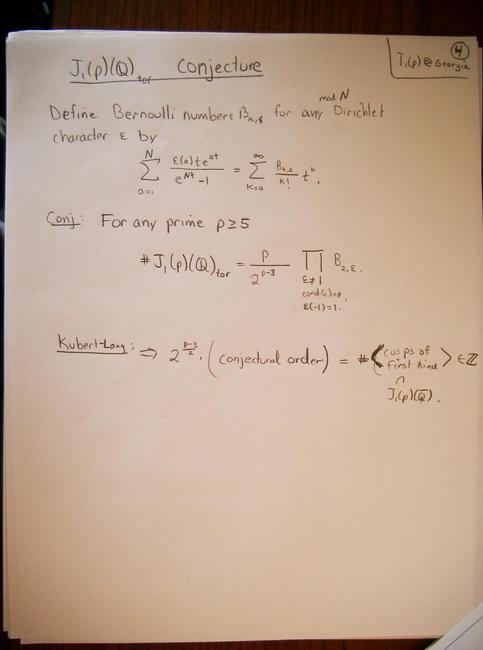 ④
J₁(p) @ Georgia
J₁(p)(Q)_tor Conjecture
mod N
Define Bernoulli numbers B_{n,ε} for any Dirichlet
character ε by
∑_{a=1}^{N} ε(a)te^{at} / (e^{Nt} -1) = ∑_{k=0}^{∞} B_{k,ε} / k! t^k.
Conj: For any prime p ≥ 5
#J₁(p)(Q)_tor = p / 2^{p-3} ∏ B_{2,ε}.
ε≠1
cond(ε)=p,
ε(-1)=1.
Kubert-Lang: ⇒ 2^{(p-3)/2} · (conjectural order) = #< cusps of first kind > ∈ ℤ
∩
J₁(p)(Q̄).